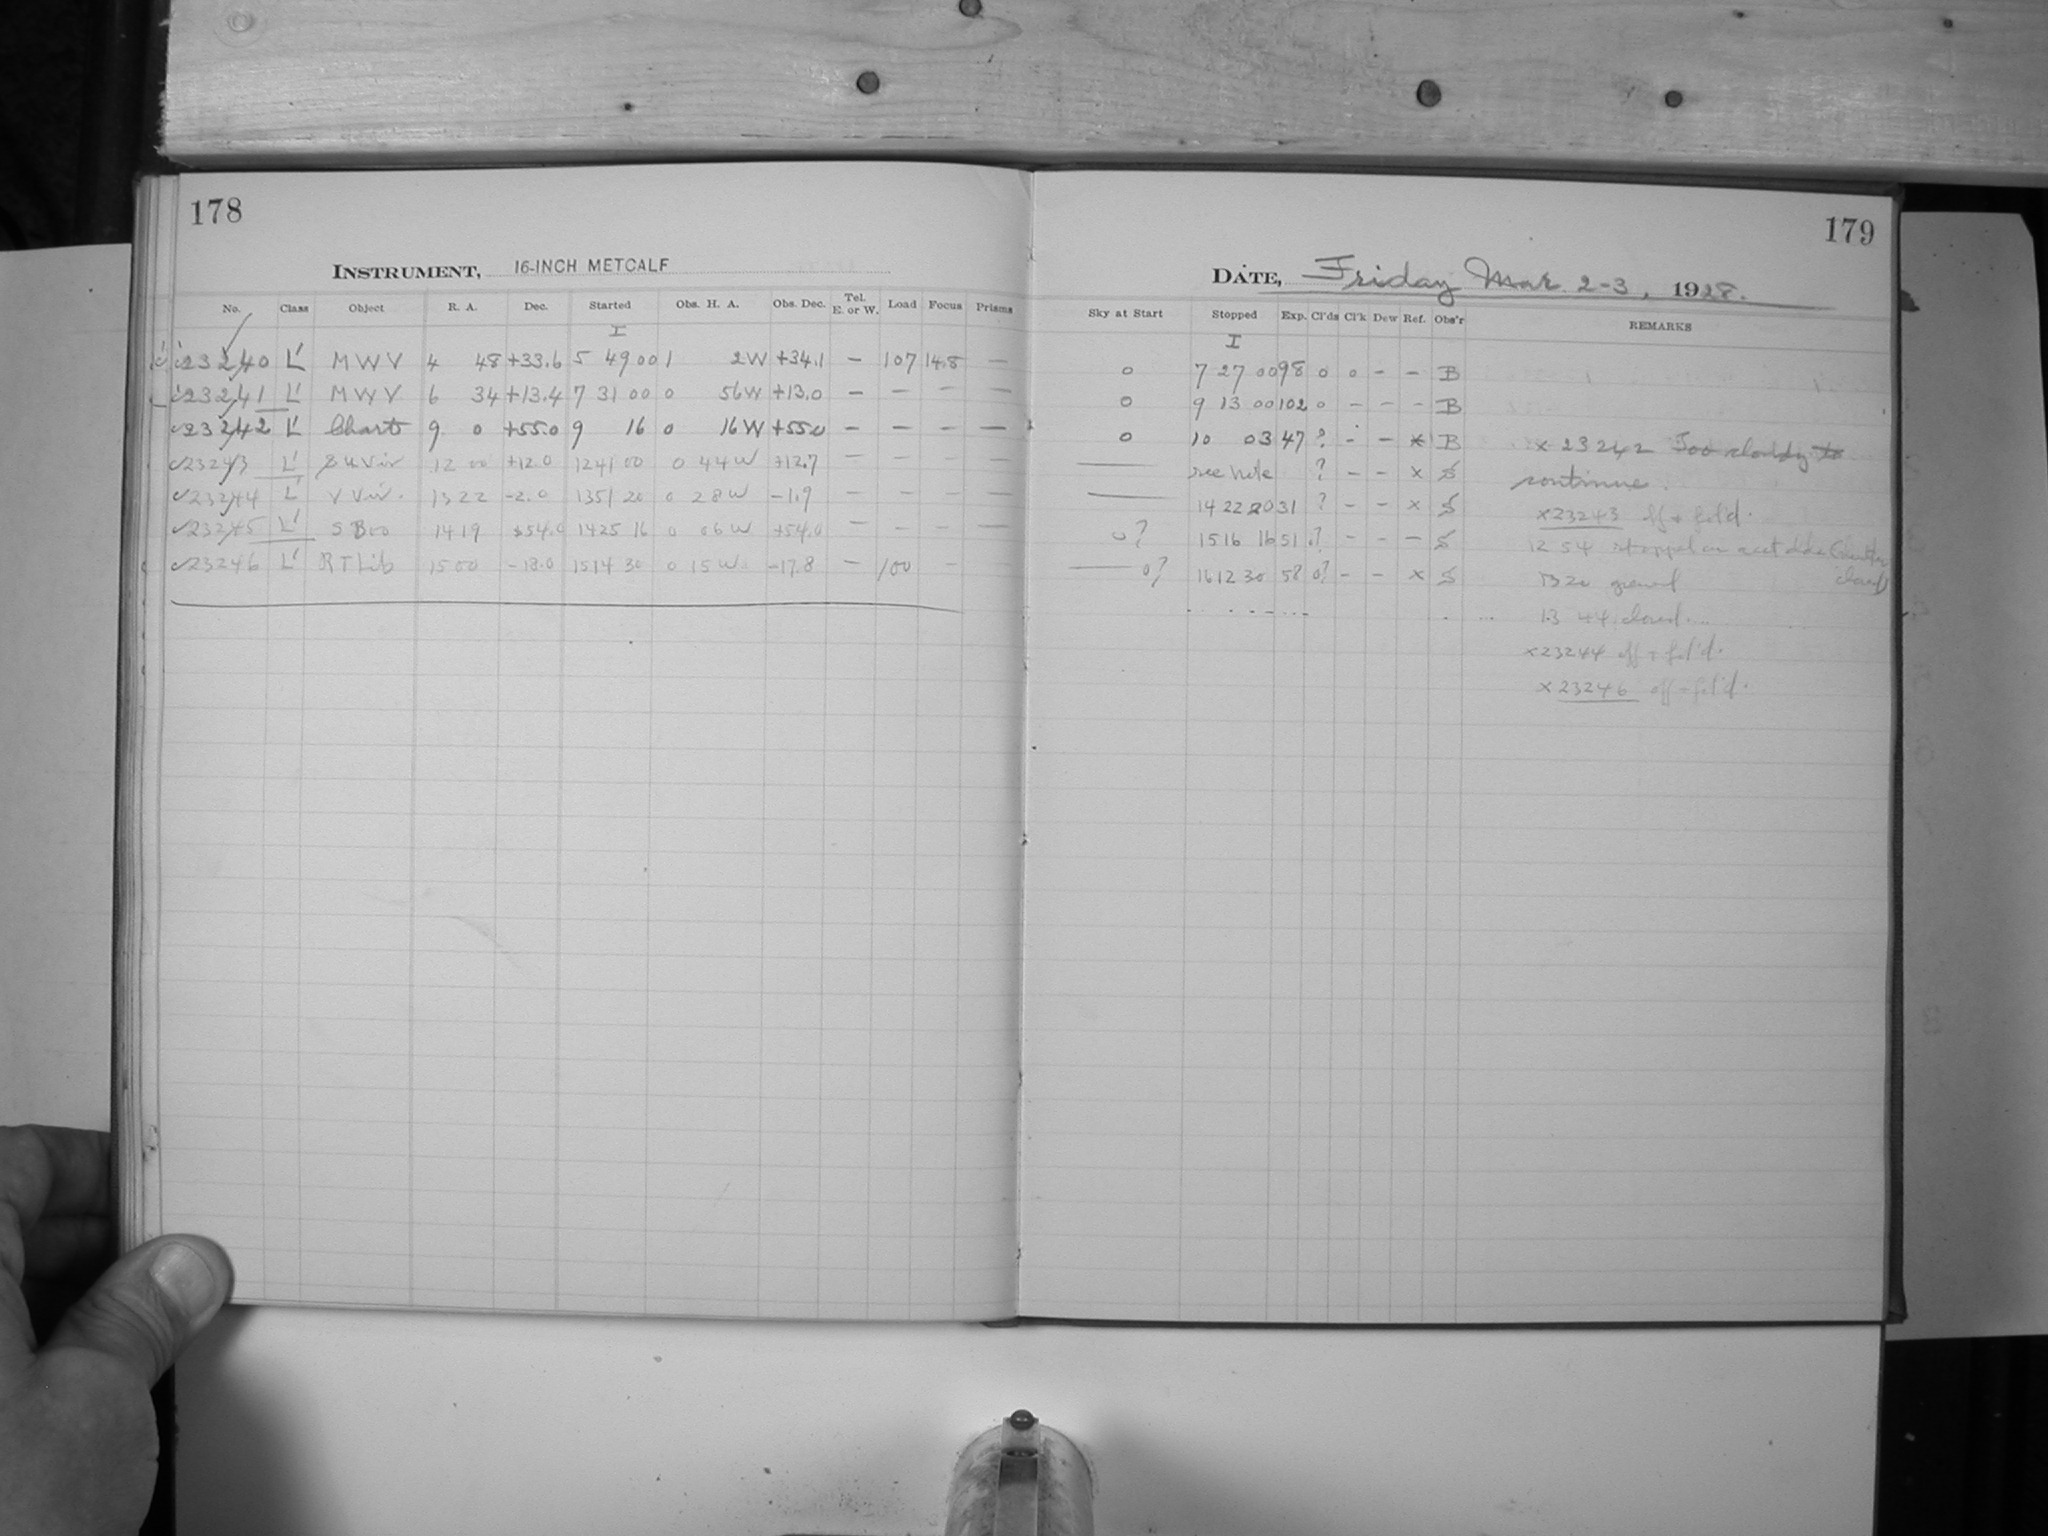 178
INSTRUMENT, 16-INCH METCALF
No. Class Object R. A. Dec. Started Obs. H. A. Obs. Dec. Tel. E. or W. Load Focus Prisms
I
23240 L' MWV 4 48 +33.6 5 49 00 1 2W +34.1 — 107 14.8 —
23241 L' MWV 6 34 +13.4 7 31 00 0 56W +13.0 — — — —
23242 L' Chart 9 0 +55.0 9 16 0 16W +55.0 — — — —
23243 L' SU Vir 12 00 +12.0 12 41 00 0 44W +12.7 — — — —
23244 L' V Vir. 13 22 -2.0 13 51 20 0 28W -1.9 — — — —
23245 L' S Boo 14 19 +54.0 14 25 16 0 06W +54.0 — — — —
23246 L' RT Lib 15 00 -18.0 15 14 30 0 15W -17.8 — 100 — —
179
DATE, Friday Mar. 2-3, 1928.
Sky at Start Stopped Exp. Cl'ds Cl'k Dew Ref. Obs'r REMARKS
I
0 7 27 00 98 0 0 - - B
0 9 13 00 102 0 - - - B
0 10 03 47 ? - - x B x 23242 Too cloudy to
— see note ? - - x S continue.
— 14 22 20 31 ? - - x S x23243 off + fol'd.
0? 15 16 16 51 ? - - - S 12 54 stopped on acct clds
— 0? 16 12 30 58 0? - - x S 13 20 opened closed)
13 44 closed
x23244 off + fol'd.
x 23246 off + fol'd.